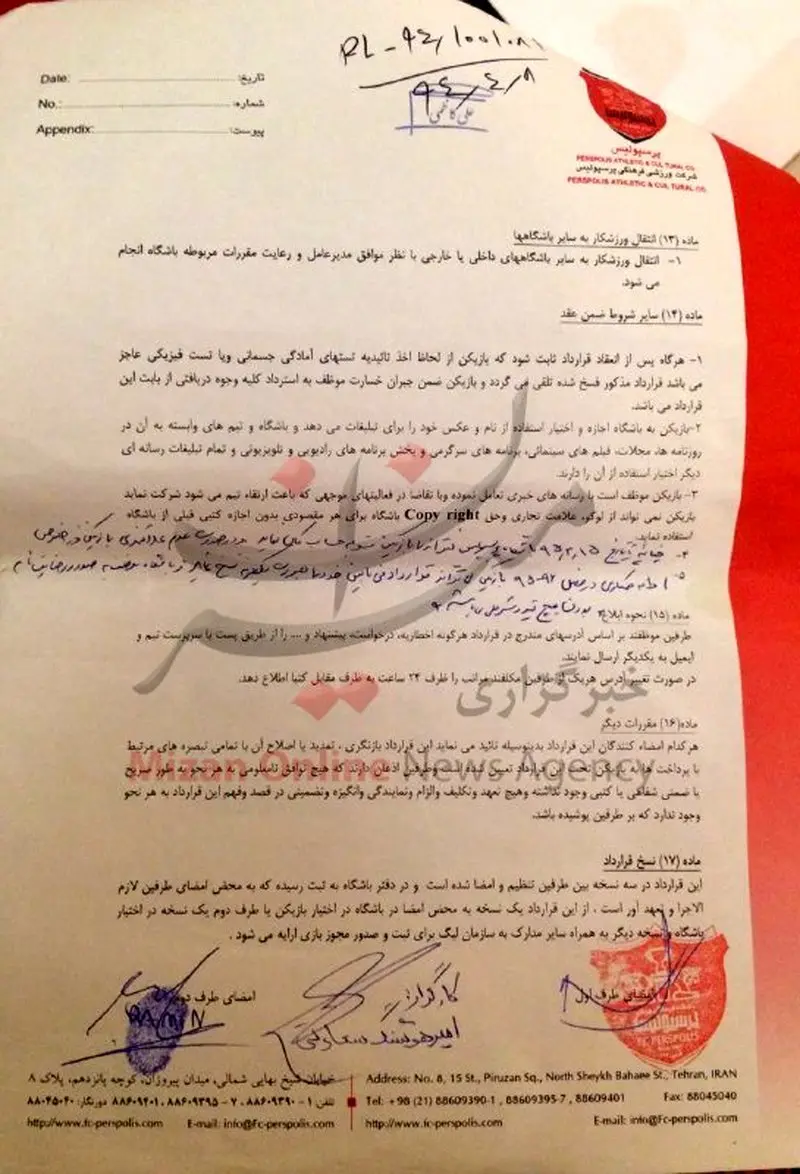 RL - 94/1001081
94/4/8
علی کاظمی
Date:
تاریخ:
No.:
شماره:
Appendix:
پیوست:
پرسپولیس
PERSPOLIS ATHLETIC & CULTURAL CO
شرکت ورزشی فرهنگی پرسپولیس
PERSPOLIS ATHLETIC & CULTURAL CO
ماده (۱۳) انتقال ورزشکار به سایر باشگاهها
۱- انتقال ورزشکار به سایر باشگاههای داخلی یا خارجی با نظر موافق مدیرعامل و رعایت مقررات مربوطه باشگاه انجام
می شود.
ماده (۱۴) سایر شروط ضمن عقد
۱- هرگاه پس از انعقاد قرارداد ثابت شود که بازیکن از لحاظ اخذ تائیدیه تستهای آمادگی جسمانی ویا تست فیزیکی عاجز
می باشد قرارداد مذکور فسخ شده تلقی می گردد و بازیکن ضمن جبران خسارت موظف به استرداد کلیه وجوه دریافتی از بابت این
قرارداد می باشد.
۲-بازیکن به باشگاه اجازه و اختیار استفاده از نام و عکس خود را برای تبلیغات می دهد و باشگاه و تیم های وابسته به آن در
روزنامه ها، مجلات، فیلم های سینمائی، برنامه های سرگرمی و پخش برنامه های رادیویی و تلویزیونی و تمام تبلیغات رسانه ای
دیگر اختیار استفاده از آن را دارند.
۳- بازیکن موظف است با رسانه های خبری تعامل نموده وبا تقاضا در فعالیتهای موجهی که باعث ارتقاء تیم می شود شرکت نماید
بازیکن نمی تواند از لوگو، علامت تجاری وحق Copy right باشگاه برای هر مقصودی بدون اجازه کتبی قبلی از باشگاه
استفاده نماید.
۴-
۵-
ماده (۱۵) نحوه ابلاغ
طرفین موظفند بر اساس آدرسهای مندرج در قرارداد هرگونه اخطاریه، درخواست، پیشنهاد و .... را از طریق پست یا سرپرست تیم و
ایمیل به یکدیگر ارسال نمایند.
در صورت تغییر آدرس هریک از طرفین مکلفند مراتب را ظرف ۲۴ ساعت به طرف مقابل کتبا اطلاع دهد.
خبرگزاری
میزان
ماده(۱۶) مقررات دیگر
هرکدام امضاء کنندگان این قرارداد بدینوسیله تائید می نماید این قرارداد بازنگری ، تمدید یا اصلاح آن با تمامی تبصره های مرتبط
Mizan Online News Agency
با پرداخت ها به بازیکن تحت این قرارداد تعیین شده است وطرفین اذعان دارند که هیچ توافق نامعلومی به هر نحو به طور صریح
یا ضمنی شفاهی یا کتبی وجود نداشته وهیچ تعهد وتکلیف والزام ونمایندگی وانگیزه وتضمینی در قصد وفهم این قرارداد به هر نحو
وجود ندارد که بر طرفین پوشیده باشد.
ماده (۱۷) نسخ قرارداد
این قرارداد در سه نسخه بین طرفین تنظیم و امضا شده است و در دفتر باشگاه به ثبت رسیده که به محض امضای طرفین لازم
الاجرا و تعهد آور است . از این قرارداد یک نسخه به محض امضا در باشگاه در اختیار بازیکن یا طرف دوم یک نسخه در اختیار
باشگاه و نسخه دیگر به همراه سایر مدارک به سازمان لیگ برای ثبت و صدور مجوز بازی ارایه می شود .
امضای طرف اول
کارگزار:
امضای طرف دوم
امیرهوشنگ سعادتی
RAMIN
پرسپولیس
FC PERSPOLIS
خیابان شیخ بهایی شمالی، میدان پیروزان، کوچه پانزدهم، پلاک ۸
تلفن ۱ - ۸۸۶۰۹۳۹۰ ، ۷ - ۸۸۶۰۹۳۹۵ ، ۸۸۶۰۹۴۰۱ دورنگار: ۸۸۰۴۵۰۴۰
http://www.fc-perspolis.com E-mail: info@Fc-perspolis.com
Address: No. 8, 15 St., Piruzan Sq., North Sheykh Bahaee St., Tehran, IRAN
Tel: +98 (21) 88609390-1 , 88609395-7 , 88609401 Fax: 88045040
http://www.fc-perspolis.com E-mail: info@Fc-perspolis.com